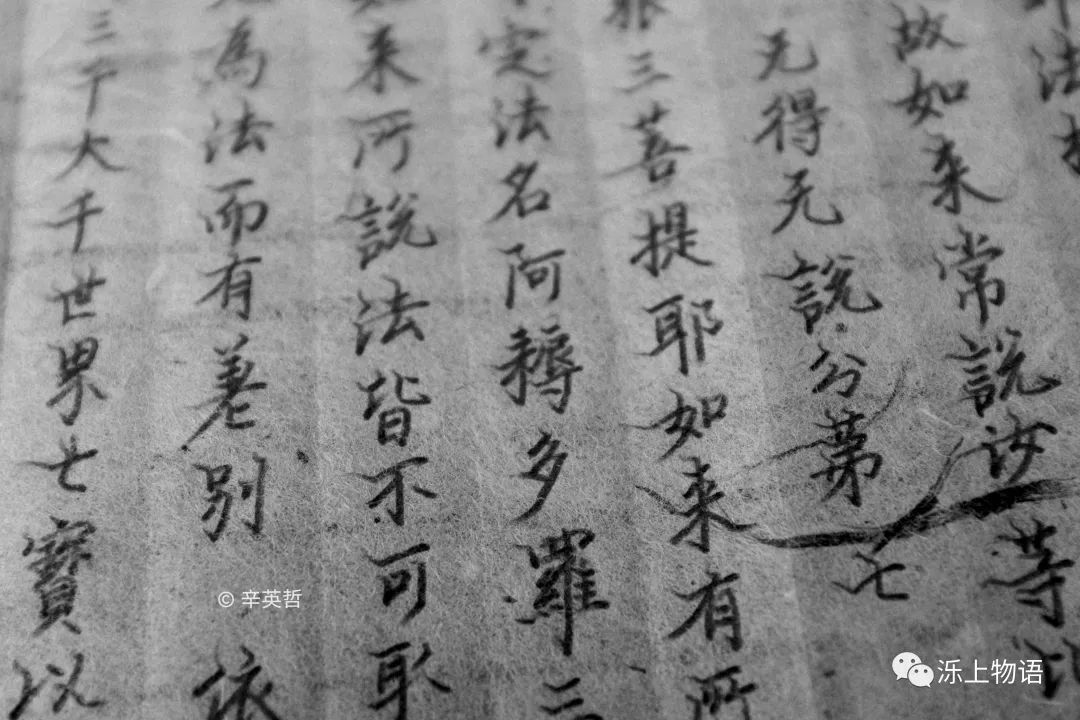 法
故如来常說汝等
无得无說分第七
三菩提耶如来有所
定法名阿耨多羅三
来所說法皆不可取
為法而有差別 依
三千大千世界七寶以
© 辛英哲
泺上物语